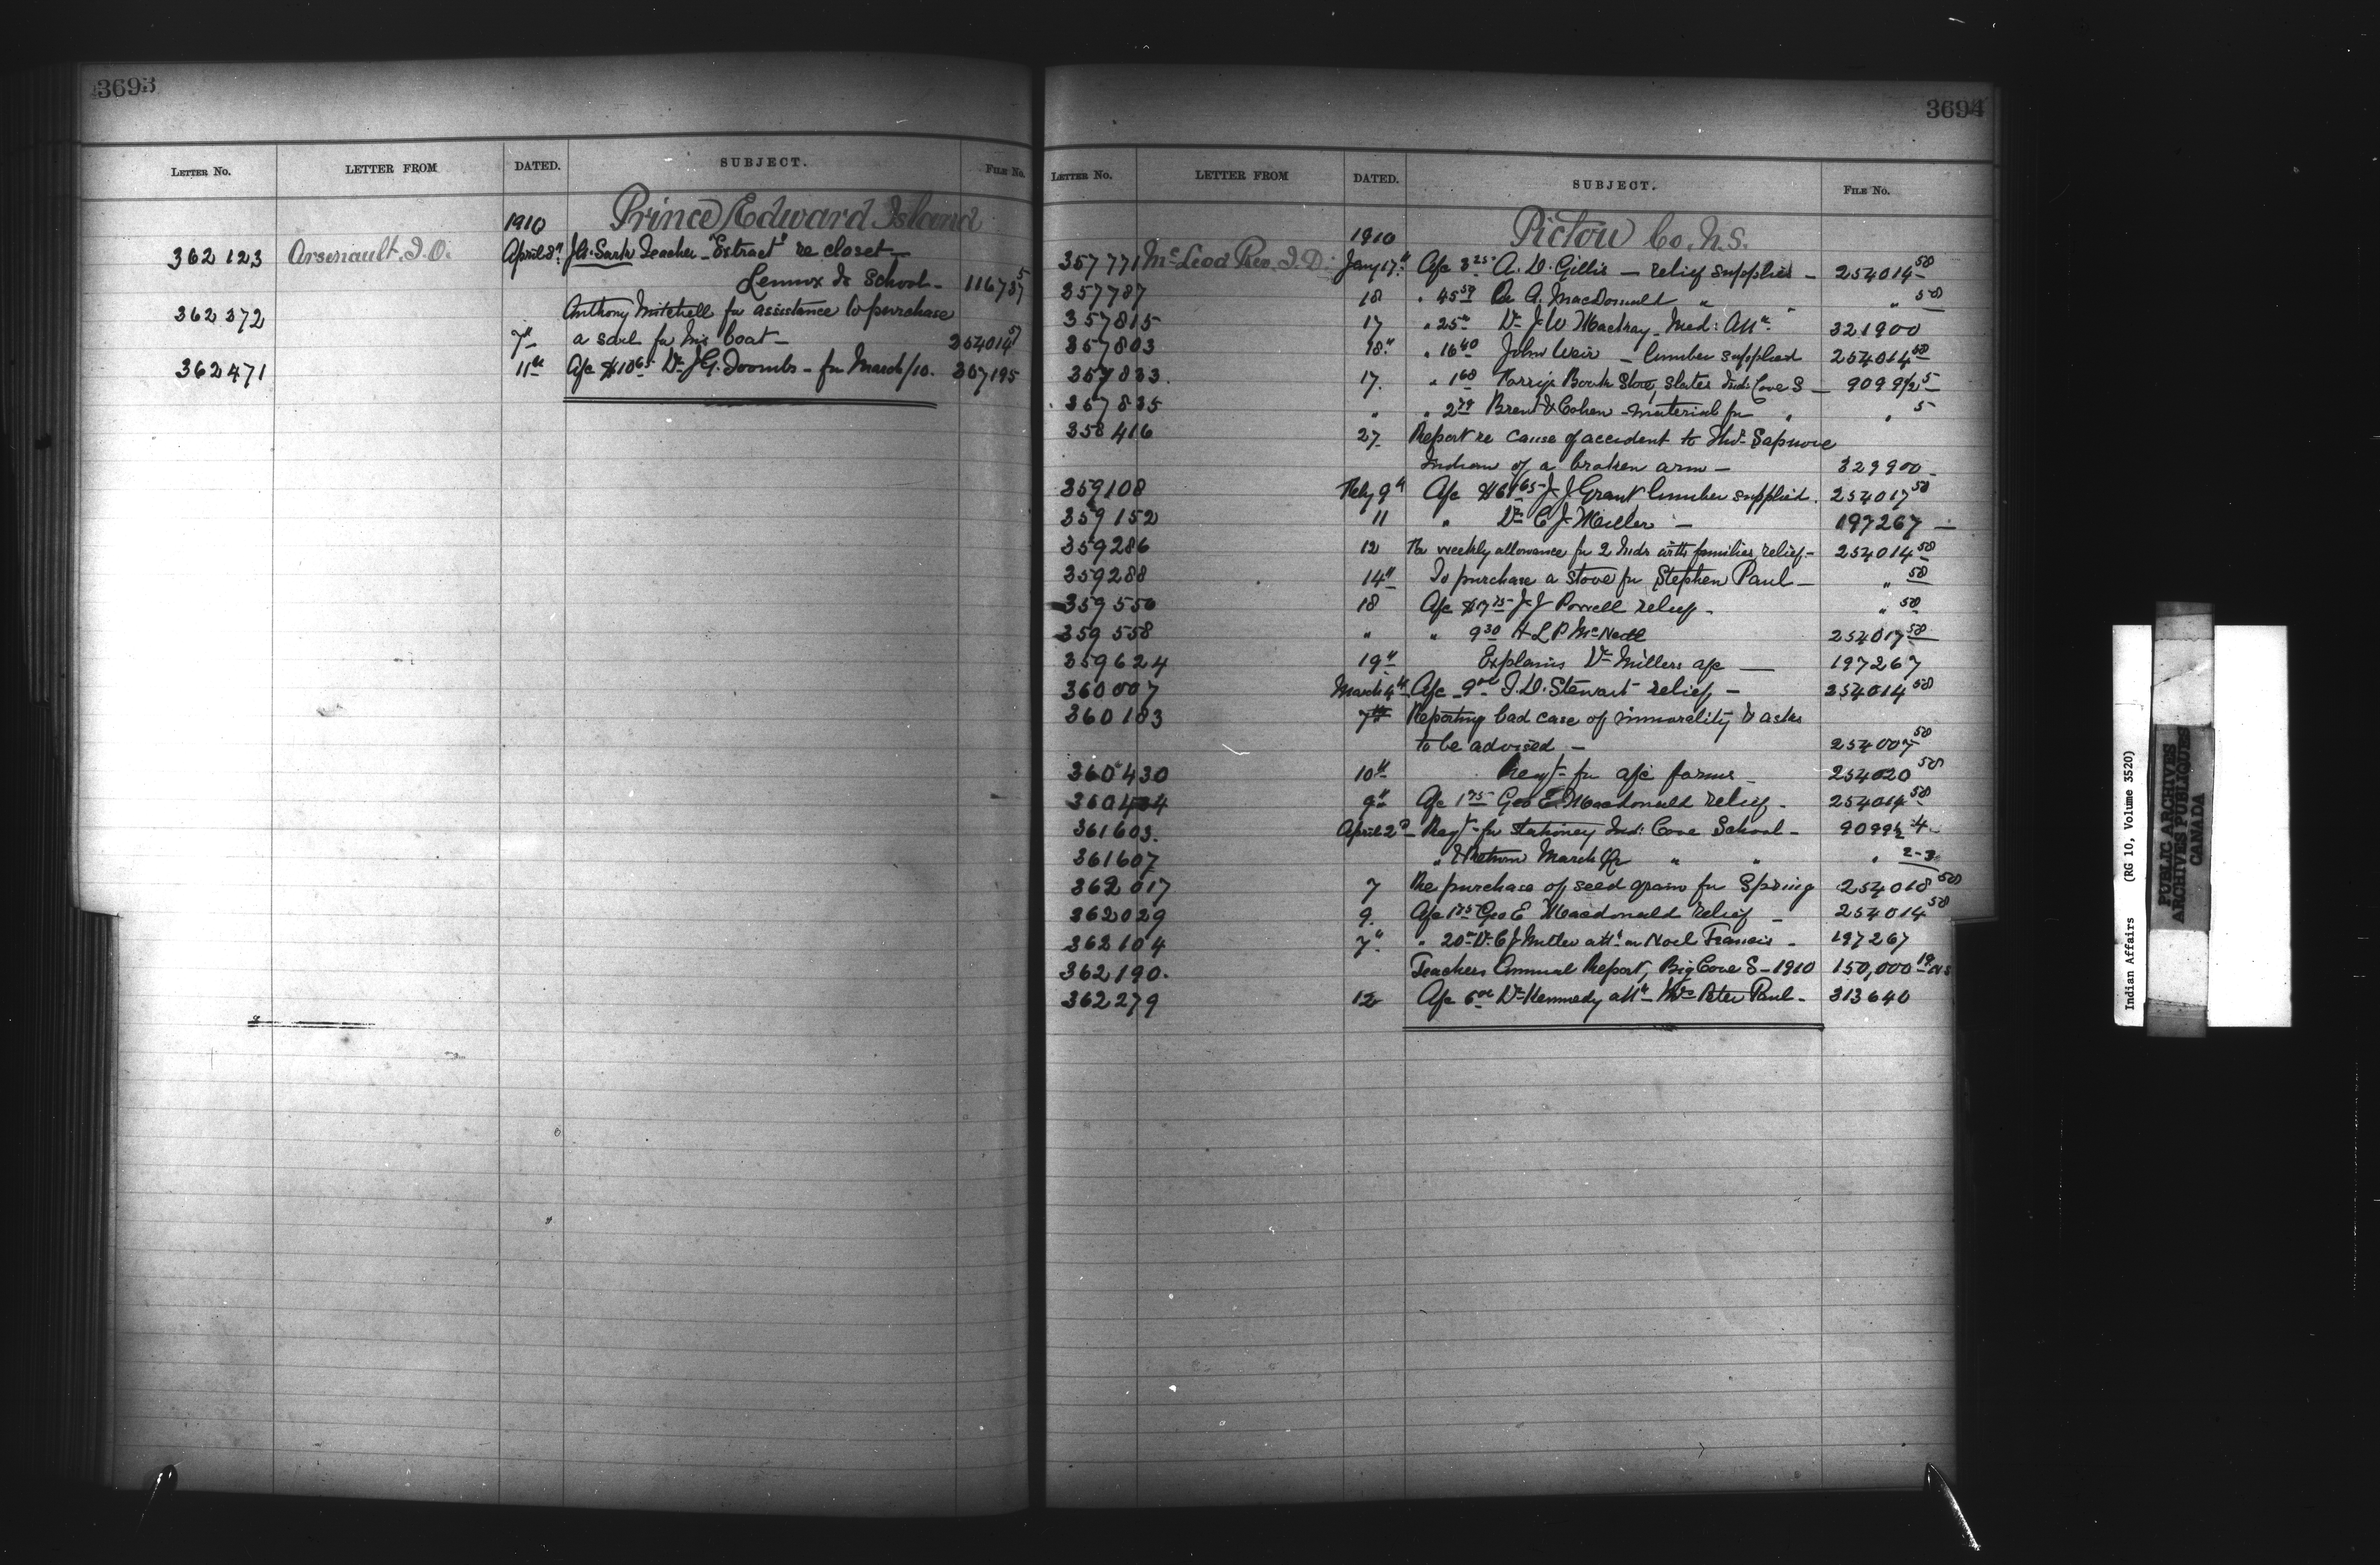 3693
LETTER NO. LETTER FROM DATED. SUBJECT. FILE No.
1910 Prince Edward Island
362123 Arsenault, J.O. April 8" J.A. Sark Teacher "Extract" re closet
Lennox Is School - 116737 5
362372 Anthony Mitchell for assistance to purchase
7" a sail for his boat - 254014 57
362471 11th A/c $10 65 Dr J.G. Toombs - for March/10. 307195
3694
LETTER NO. LETTER FROM DATED. SUBJECT. FILE No.
1910 Pictou Co. N.S.
357771 McLeod Rev. J.D. Jany 17" A/c 3 25 A.D. Gillis - relief supplies - 254014 58
357787 18 " 45 59 A. MacDonald " " " 58
357815 17 " 25 Dr J W Mackay - Med: Att. 321900
357803 18" " 16 40 John Weir - lumber supplied 254014 58
357833. 17. " 1 68 Book Store, Slates Ind: Cove S - 90992½ 5
357835 " " 2 79 & Cohen - material for " " 5
358416 27 Report re cause of accident to
Indian of a broken arm - 329900
359108 Feby 9th A/c $61 65 J J Grant lumber supplied. 254017 58
359152 11 " Dr C J Miller - 197267 -
359286 12 Re weekly allowance for 2 Inds with families, relief - 254014 58
359288 14" To purchase a stove for Stephen Paul - " 58
359556 18 A/c $17 75 J J Powell relief - " 58
359558 " " 9 30 H L P McNeil 254017 58
359624 19" Explains Dr Millers a/c - 197267
360007 March 4th A/c 9 00 J.D. Stewart relief - 254014 58
360183 7th Reporting bad case of immorality & asks
to be advised - 254007 58
360430 10th Reqt - for a/c forms - 254020 58
360434 9" A/c 1 75 Geo E. Macdonald relief - 254014 58
361603. April 2d Reqt - for stationery Ind: Cove School - 9099½ 4
361607 " Return March Qr " " " 2-3
362017 7 Re purchase of seed grain for Spring 254018 58
362029 9. A/c 1 75 Geo E Macdonald relief - 254014 58
362104 7" " 20 Dr C J Miller att. on Noel Francis - 197267
362190. Teachers Annual Report, Big Cove S - 1910 150,000 19 NS
362279 12 A/c 6 00 Dr Kennedy att. Mrs Peter Paul - 313640
Indian Affairs (RG 10, Volume 3520)
PUBLIC ARCHIVES
ARCHIVES PUBLIQUES
CANADA